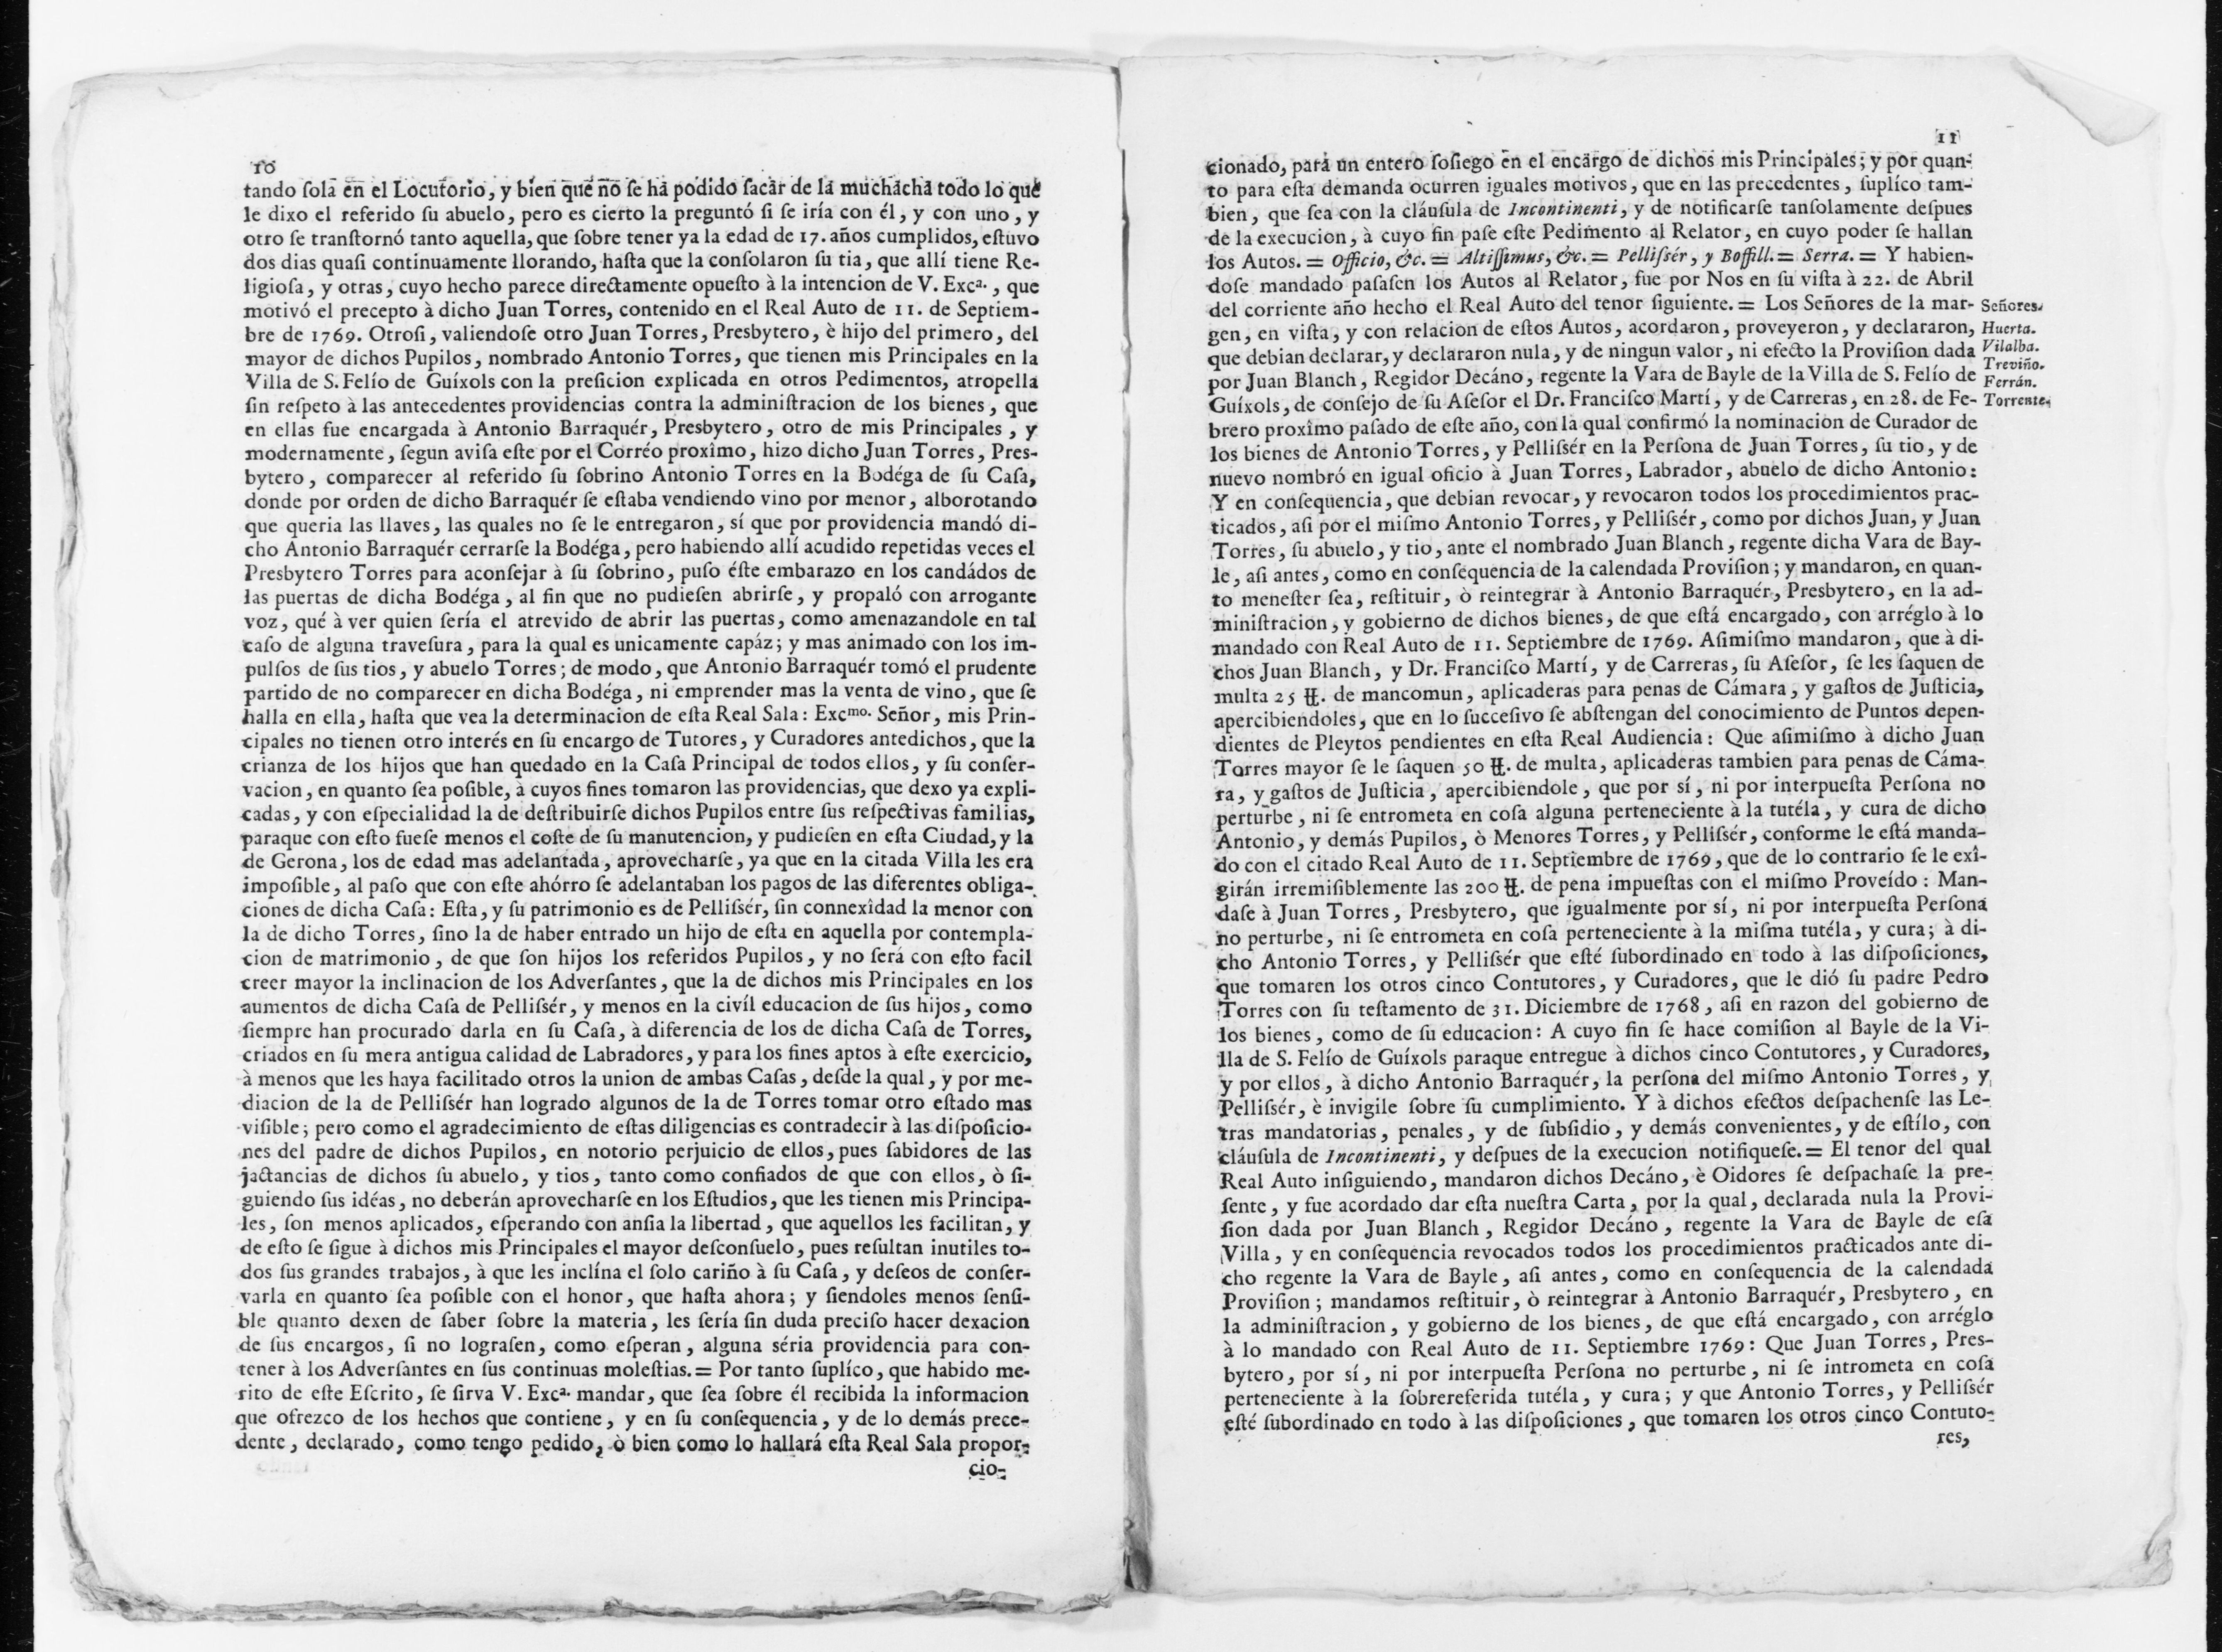 10
tando ſola en el Locutorio, y bien que no ſe ha podido ſacar de la muchacha todo lo que
le dixo el referido ſu abuelo, pero es cierto la preguntó ſi ſe iría con él, y con uno, y
otro ſe tranſtornó tanto aquella, que ſobre tener ya la edad de 17. años cumplidos, eſtuvo
dos dias quaſi continuamente llorando, haſta que la conſolaron ſu tia, que allí tiene Re-
ligioſa, y otras, cuyo hecho parece directamente opueſto à la intencion de V. Excª., que
motivó el precepto à dicho Juan Torres, contenido en el Real Auto de 11. de Septiem-
bre de 1769. Otroſi, valiendoſe otro Juan Torres, Presbytero, è hijo del primero, del
mayor de dichos Pupilos, nombrado Antonio Torres, que tienen mis Principales en la
Villa de S. Felío de Guíxols con la preſicion explicada en otros Pedimentos, atropella
ſin reſpeto à las antecedentes providencias contra la adminiſtracion de los bienes, que
en ellas fue encargada à Antonio Barraquér, Presbytero, otro de mis Principales, y
modernamente, ſegun aviſa eſte por el Corréo proxîmo, hizo dicho Juan Torres, Pres-
bytero, comparecer al referido ſu ſobrino Antonio Torres en la Bodéga de ſu Caſa,
donde por orden de dicho Barraquér ſe eſtaba vendiendo vino por menor, alborotando
que queria las llaves, las quales no ſe le entregaron, sí que por providencia mandó di-
cho Antonio Barraquér cerrarſe la Bodéga, pero habiendo allí acudido repetidas veces el
Presbytero Torres para aconſejar à ſu ſobrino, puſo éſte embarazo en los candádos de
las puertas de dicha Bodéga, al fin que no pudieſen abrirſe, y propaló con arrogante
voz, qué à ver quien ſería el atrevido de abrir las puertas, como amenazandole en tal
caſo de alguna traveſura, para la qual es unicamente capáz; y mas animado con los im-
pulſos de ſus tios, y abuelo Torres; de modo, que Antonio Barraquér tomó el prudente
partido de no comparecer en dicha Bodéga, ni emprender mas la venta de vino, que ſe
halla en ella, haſta que vea la determinacion de eſta Real Sala: Excmo. Señor, mis Prin-
cipales no tienen otro interés en ſu encargo de Tutores, y Curadores antedichos, que la
crianza de los hijos que han quedado en la Caſa Principal de todos ellos, y ſu conſer-
vacion, en quanto ſea poſible, à cuyos fines tomaron las providencias, que dexo ya expli-
cadas, y con eſpecialidad la de deſtribuirſe dichos Pupilos entre ſus reſpectivas familias,
paraque con eſto fueſe menos el coſte de ſu manutencion, y pudieſen en eſta Ciudad, y la
de Gerona, los de edad mas adelantada, aprovecharſe, ya que en la citada Villa les era
impoſible, al paſo que con eſte ahórro ſe adelantaban los pagos de las diferentes obliga-
ciones de dicha Caſa: Eſta, y ſu patrimonio es de Pelliſsér, ſin connexîdad la menor con
la de dicho Torres, ſino la de haber entrado un hijo de eſta en aquella por contempla-
cion de matrimonio, de que ſon hijos los referidos Pupilos, y no ſerá con eſto facil
creer mayor la inclinacion de los Adverſantes, que la de dichos mis Principales en los
aumentos de dicha Caſa de Pelliſsér, y menos en la civíl educacion de ſus hijos, como
ſiempre han procurado darla en ſu Caſa, à diferencia de los de dicha Caſa de Torres,
criados en ſu mera antigua calidad de Labradores, y para los fines aptos à eſte exercicio,
à menos que les haya facilitado otros la union de ambas Caſas, deſde la qual, y por me-
diacion de la de Pelliſsér han logrado algunos de la de Torres tomar otro eſtado mas
viſible; pero como el agradecimiento de eſtas diligencias es contradecir à las diſpoſicio-
nes del padre de dichos Pupilos, en notorio perjuicio de ellos, pues ſabidores de las
jactancias de dichos ſu abuelo, y tios, tanto como confiados de que con ellos, ò ſi-
guiendo ſus idéas, no deberán aprovecharſe en los Eſtudios, que les tienen mis Principa-
les, ſon menos aplicados, eſperando con anſia la libertad, que aquellos les facilitan, y
de eſto ſe ſigue à dichos mis Principales el mayor deſconſuelo, pues reſultan inutiles to-
dos ſus grandes trabajos, à que les inclína el ſolo cariño à ſu Caſa, y deſeos de conſer-
varla en quanto ſea poſible con el honor, que haſta ahora; y ſiendoles menos ſenſi-
ble quanto dexen de ſaber ſobre la materia, les ſería ſin duda preciſo hacer dexacion
de ſus encargos, ſi no lograſen, como eſperan, alguna séria providencia para con-
tener à los Adverſantes en ſus continuas moleſtias. = Por tanto ſuplíco, que habido me-
rito de eſte Eſcrito, ſe ſirva V. Excª. mandar, que ſea ſobre él recibida la informacion
que ofrezco de los hechos que contiene, y en ſu conſequencia, y de lo demás prece-
dente, declarado, como tengo pedido, ò bien como lo hallará eſta Real Sala propor-
cio-
11
cionado, para un entero ſoſiego en el encargo de dichos mis Principales; y por quan-
to para eſta demanda ocurren iguales motivos, que en las precedentes, ſuplíco tam-
bien, que ſea con la cláuſula de Incontinenti, y de notificarſe tanſolamente deſpues
de la execucion, à cuyo fin paſe eſte Pedimento al Relator, en cuyo poder ſe hallan
los Autos. = Officio, &c. = Altiſſimus, &c. = Pelliſsér, y Boffill. = Serra. = Y habien-
doſe mandado paſaſen los Autos al Relator, fue por Nos en ſu viſta à 22. de Abril
del corriente año hecho el Real Auto del tenor ſiguiente. = Los Señores de la mar-
gen, en viſta, y con relacion de eſtos Autos, acordaron, proveyeron, y declararon,
que debian declarar, y declararon nula, y de ningun valor, ni efecto la Proviſion dada
por Juan Blanch, Regidor Decáno, regente la Vara de Bayle de la Villa de S. Felío de
Guíxols, de conſejo de ſu Aſeſor el Dr. Franciſco Martí, y de Carreras, en 28. de Fe-
brero proxîmo paſado de eſte año, con la qual confirmó la nominacion de Curador de
los bienes de Antonio Torres, y Pelliſsér en la Perſona de Juan Torres, ſu tio, y de
nuevo nombró en igual oficio à Juan Torres, Labrador, abuelo de dicho Antonio:
Y en conſequencia, que debian revocar, y revocaron todos los procedimientos prac-
ticados, aſi por el miſmo Antonio Torres, y Pelliſsér, como por dichos Juan, y Juan
Torres, ſu abuelo, y tio, ante el nombrado Juan Blanch, regente dicha Vara de Bay-
le, aſi antes, como en conſequencia de la calendada Proviſion; y mandaron, en quan-
to meneſter ſea, reſtituir, ò reintegrar à Antonio Barraquér, Presbytero, en la ad-
miniſtracion, y gobierno de dichos bienes, de que eſtá encargado, con arréglo à lo
mandado con Real Auto de 11. Septiembre de 1769. Aſimiſmo mandaron, que à di-
chos Juan Blanch, y Dr. Franciſco Martí, y de Carreras, ſu Aſeſor, ſe les ſaquen de
multa 25 ₶. de mancomun, aplicaderas para penas de Cámara, y gaſtos de Juſticia,
apercibiendoles, que en lo ſucceſivo ſe abſtengan del conocimiento de Puntos depen-
dientes de Pleytos pendientes en eſta Real Audiencia: Que aſimiſmo à dicho Juan
Torres mayor ſe le ſaquen 50 ₶. de multa, aplicaderas tambien para penas de Cáma-
ra, y gaſtos de Juſticia, apercibiendole, que por sí, ni por interpueſta Perſona no
perturbe, ni ſe entrometa en coſa alguna perteneciente à la tutéla, y cura de dicho
Antonio, y demás Pupilos, ò Menores Torres, y Pelliſsér, conforme le eſtá manda-
do con el citado Real Auto de 11. Septiembre de 1769, que de lo contrario ſe le exî-
girán irremiſiblemente las 200 ₶. de pena impueſtas con el miſmo Proveído: Man-
daſe à Juan Torres, Presbytero, que igualmente por sí, ni por interpueſta Perſona
no perturbe, ni ſe entrometa en coſa perteneciente à la miſma tutéla, y cura; à di-
cho Antonio Torres, y Pelliſsér que eſté ſubordinado en todo à las diſpoſiciones,
que tomaren los otros cinco Contutores, y Curadores, que le dió ſu padre Pedro
Torres con ſu teſtamento de 31. Diciembre de 1768, aſi en razon del gobierno de
los bienes, como de ſu educacion: A cuyo fin ſe hace comiſion al Bayle de la Vi-
lla de S. Felío de Guíxols paraque entregue à dichos cinco Contutores, y Curadores,
y por ellos, à dicho Antonio Barraquér, la perſona del miſmo Antonio Torres, y
Pelliſsér, è invigile ſobre ſu cumplimiento. Y à dichos efectos deſpachenſe las Le-
tras mandatorias, penales, y de ſubſidio, y demás convenientes, y de eſtílo, con
cláuſula de Incontinenti, y deſpues de la execucion notifiqueſe. = El tenor del qual
Real Auto inſiguiendo, mandaron dichos Decáno, è Oidores ſe deſpachaſe la pre-
ſente, y fue acordado dar eſta nueſtra Carta, por la qual, declarada nula la Provi-
ſion dada por Juan Blanch, Regidor Decáno, regente la Vara de Bayle de eſa
Villa, y en conſequencia revocados todos los procedimientos practicados ante di-
cho regente la Vara de Bayle, aſi antes, como en conſequencia de la calendada
Proviſion; mandamos reſtituir, ò reintegrar à Antonio Barraquér, Presbytero, en
la adminiſtracion, y gobierno de los bienes, de que eſtá encargado, con arréglo
à lo mandado con Real Auto de 11. Septiembre 1769: Que Juan Torres, Pres-
bytero, por sí, ni por interpueſta Perſona no perturbe, ni ſe intrometa en coſa
perteneciente à la ſobrereferida tutéla, y cura; y que Antonio Torres, y Pelliſsér
eſté ſubordinado en todo à las diſpoſiciones, que tomaren los otros cinco Contuto-
res,
Señores.
Huerta.
Vilalba.
Treviño.
Ferrán.
Torrente.